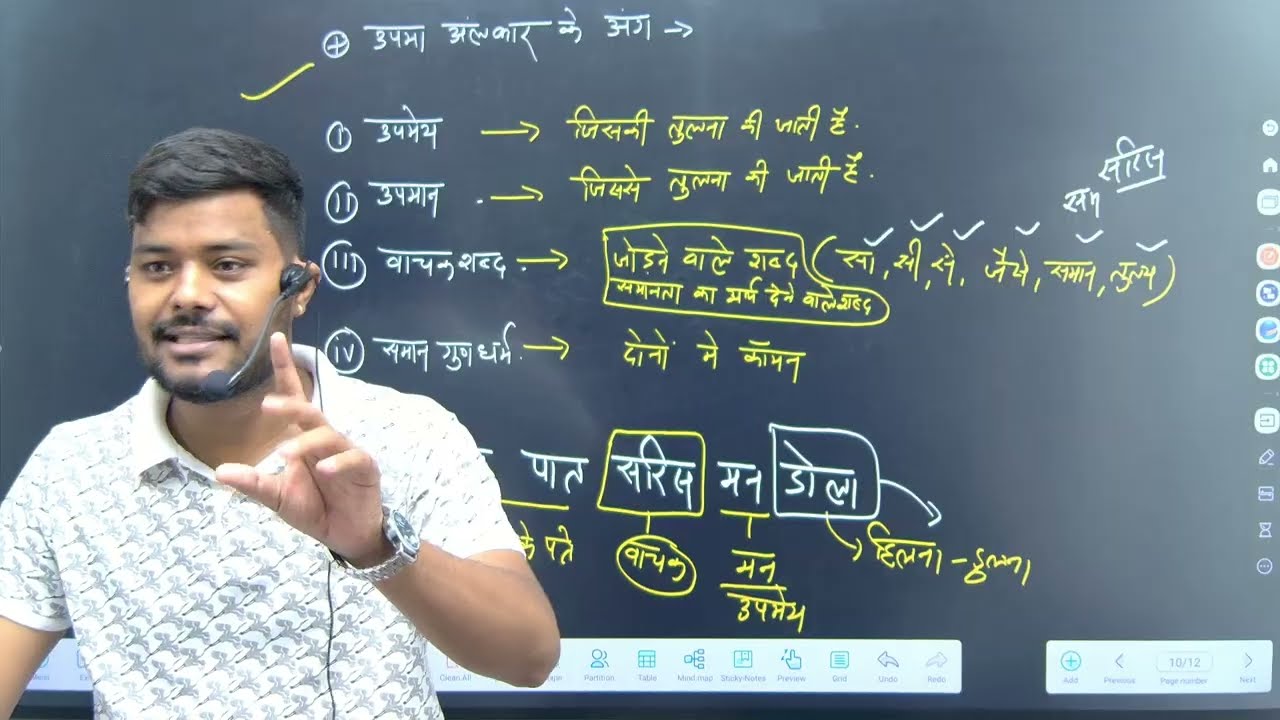 ⊕ उपमा अंलकार के अंग →
① उपमेय → जिसकी तुलना की जाती है.
सरिस
(ii) उपमान . → जिससे तुलना की जाती है.
सम
(iii) वाचक शब्द. → जोड़ने वाले शब्द (सा, सी, से, जैसे, समान, तुल्य)
समानता का अर्थ देने वाले शब्द
(iv) समान गुण धर्म. → दोनों मे कॉमन
पात सरिस मन डोला
के पत्ते वाचक मन → हिलना - डुलना
उपमेय
Clean All Partition Table Mind map Sticky-Notes Preview Grid Undo Redo Add Previous 10/12 Page number Next